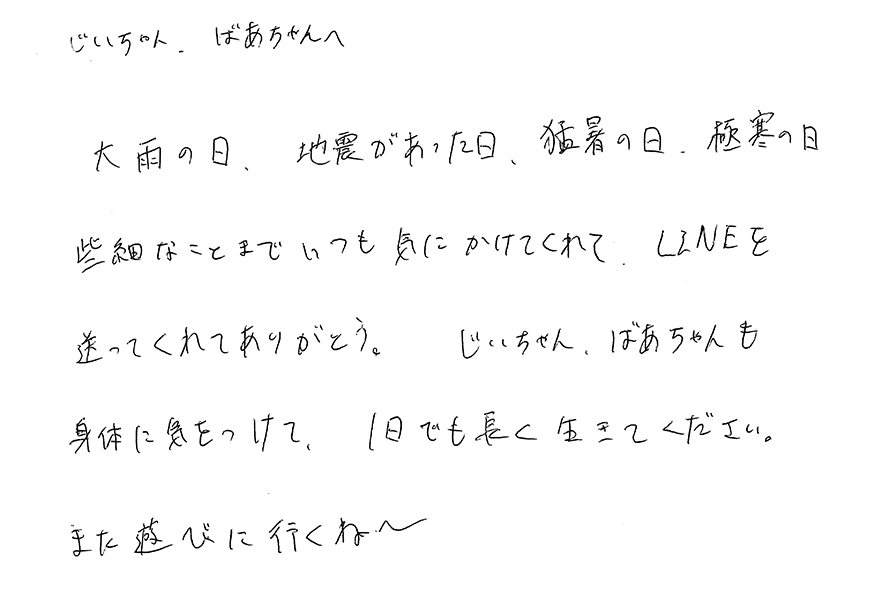 じいちゃん、ばあちゃんへ
大雨の日、地震があった日、猛暑の日、極寒の日
些細なことまでいつも気にかけてくれて、LINEを
送ってくれてありがとう。じいちゃん、ばあちゃんも
身体に気をつけて、1日でも長く生きてください。
また遊びに行くね〜